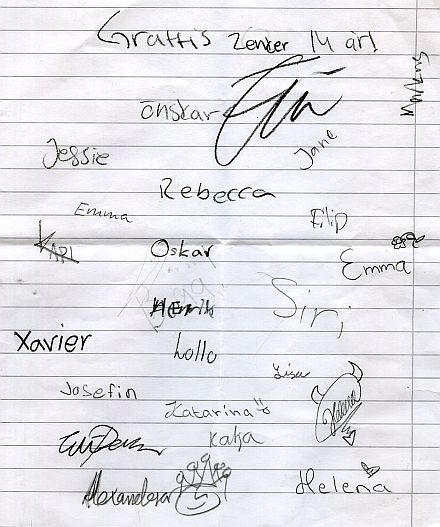 Grattis Zenter 14 år!
Markus
önskar
Jane
Jessie
Rebecca
Emma
Filip
KARI
Oskar
Emma
Henrik
Siri
Xavier
Lollo
Lisa
Josefin
Katarina
Helena
Katja
Alexandera
Helena